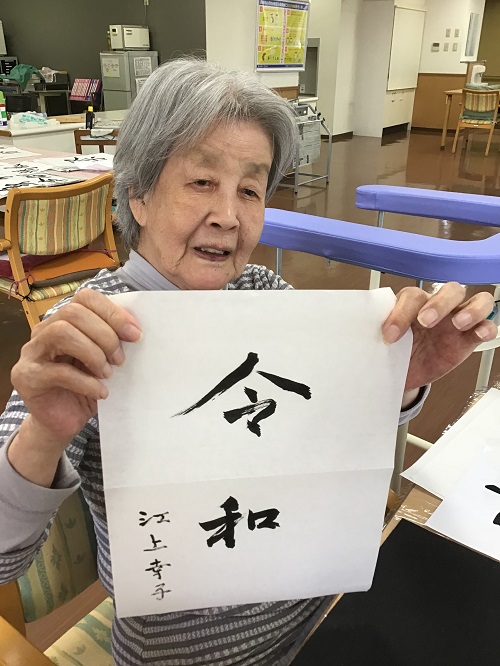 令
和
江上幸子